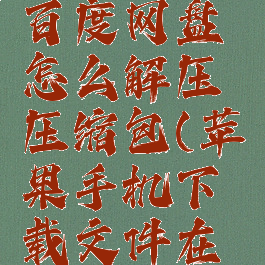 百度网盘
怎么解压
压缩包(苹
果手机下
载文件在